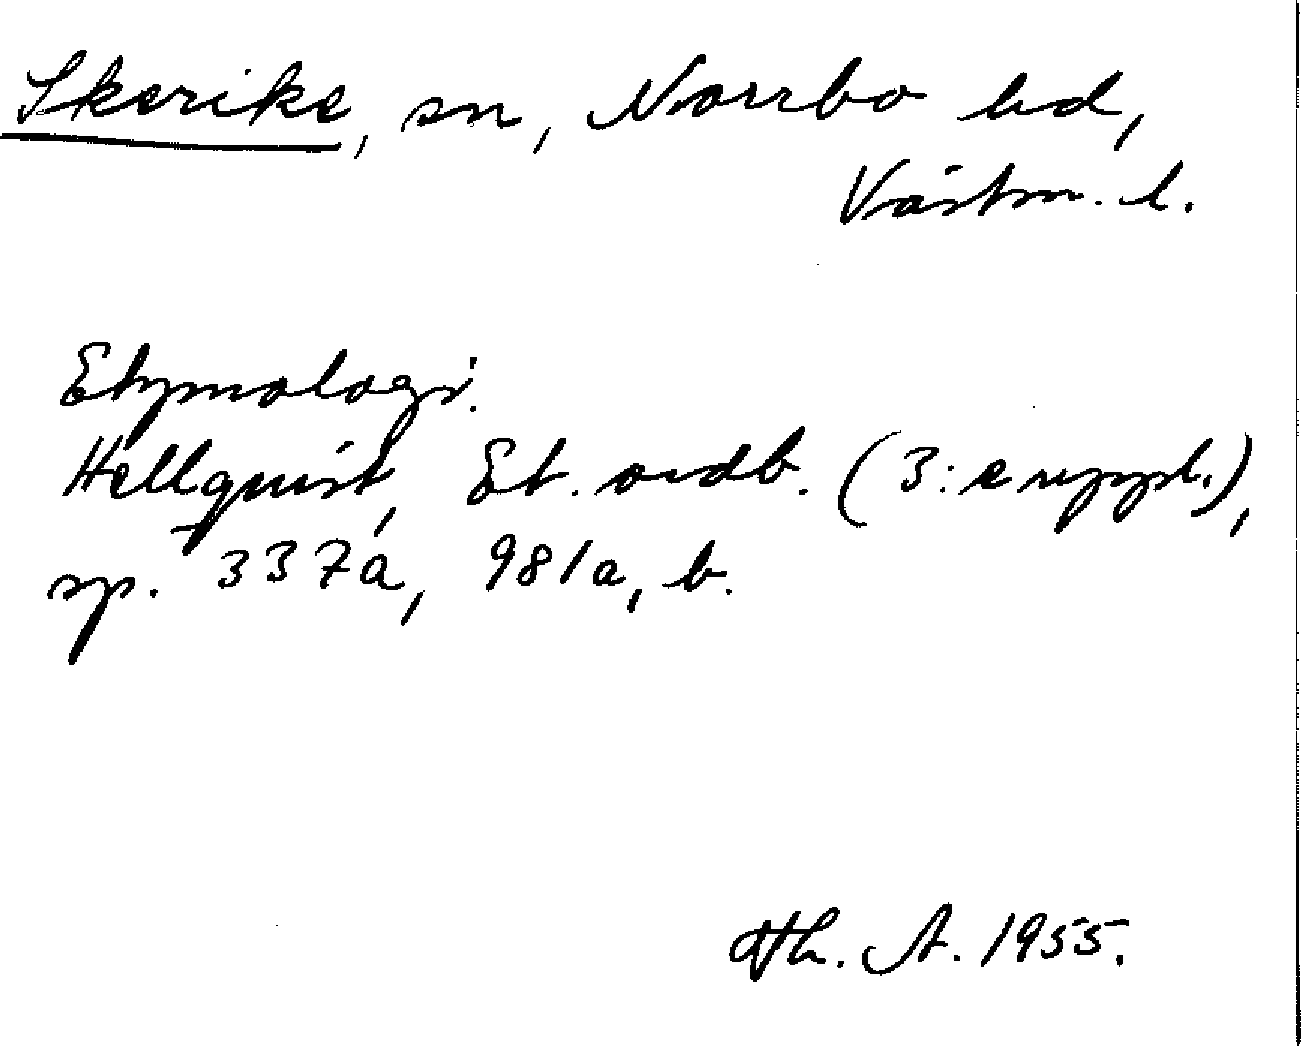 Skerike, sn, Norrbo hd,
Västm. l.
Etymologi.
Hellquist, Et. ordb. (3:e uppl.),
sp. 337a, 981a, b.
Th. A. 1955.